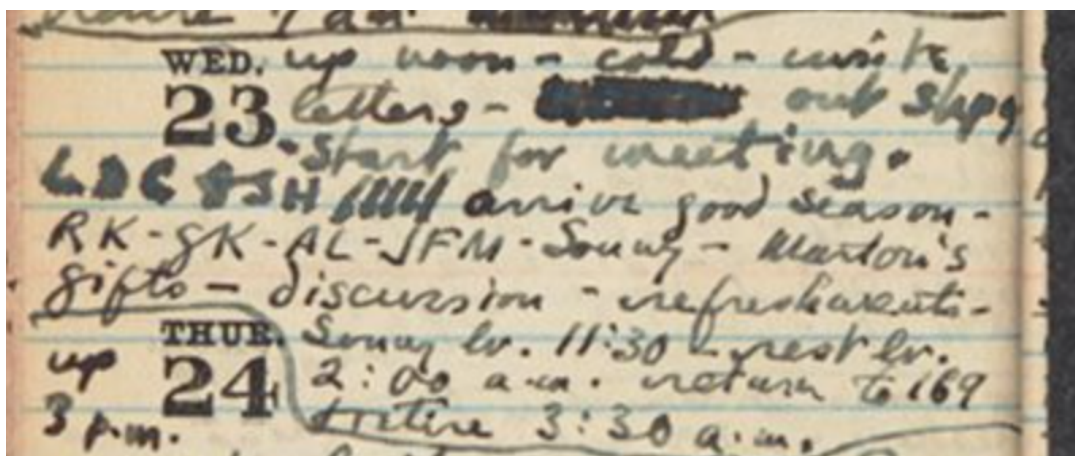 WED. up noon - cold - write
23 letters - out shpg
. Start for meeting.
LDC & SH //// arrive good season -
RK - GK - AL - JFM - Sonny - Marlon's
gifts - discussion - refreshments -
THUR. Sonny lv. 11:30 - rest lv.
up 24 2:00 a.m. return to 169
3 p.m. & retire 3:30 a.m.